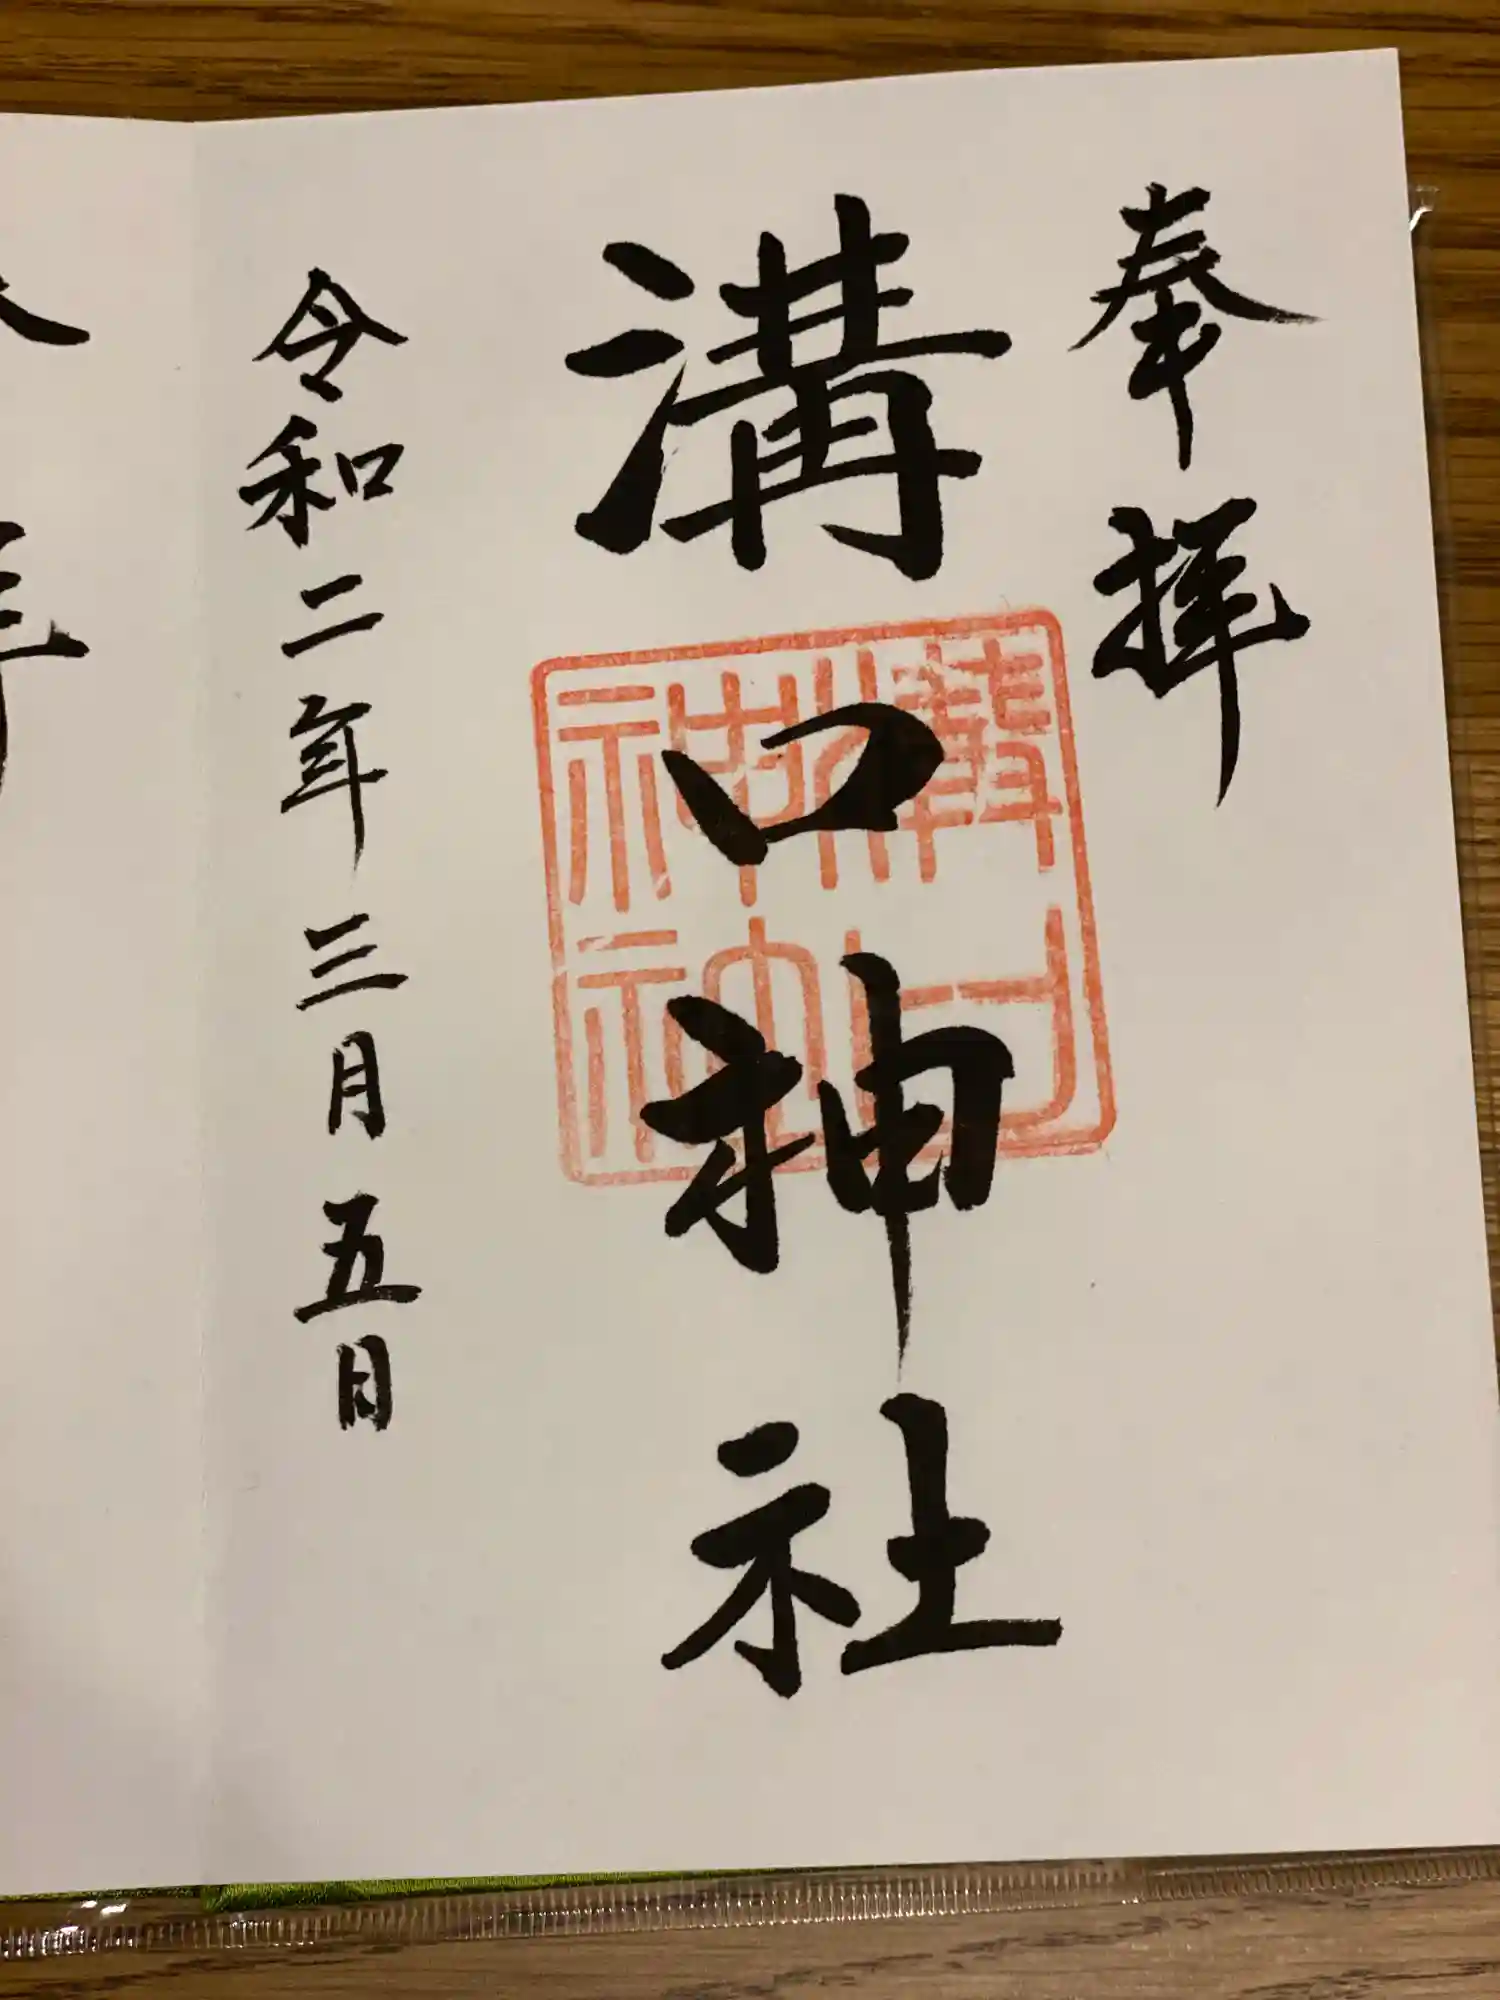 奉拝
溝口神社
溝口神社
令和二年三月五日
拝